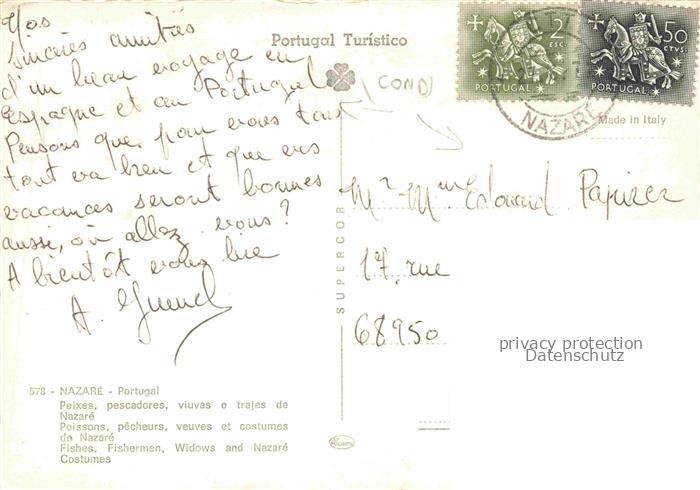 Nos
sincères amitiés
d'un beau voyage en
Espagne et au Portugal
Pensons que pour vous tous
tout va bien et que vos
vacances seront bonnes
aussi, où allez vous?
A bientôt vous lire
A.
Portugal Turístico
(COND)
2$
ESC.
PORTUGAL
50
CTVS.
PORTUGAL
NAZARÉ
Made in Italy
Mr Mme Edouard
17, rue
68950
privacy protection
Datenschutz
SUPERCOR
578 - NAZARÉ - Portugal
Peixes, pescadores, viuvas e trajes de
Nazaré
Poissons, pêcheurs, veuves et costumes
de Nazaré
Fishes, Fisherman, Widows and Nazaré
Costumes